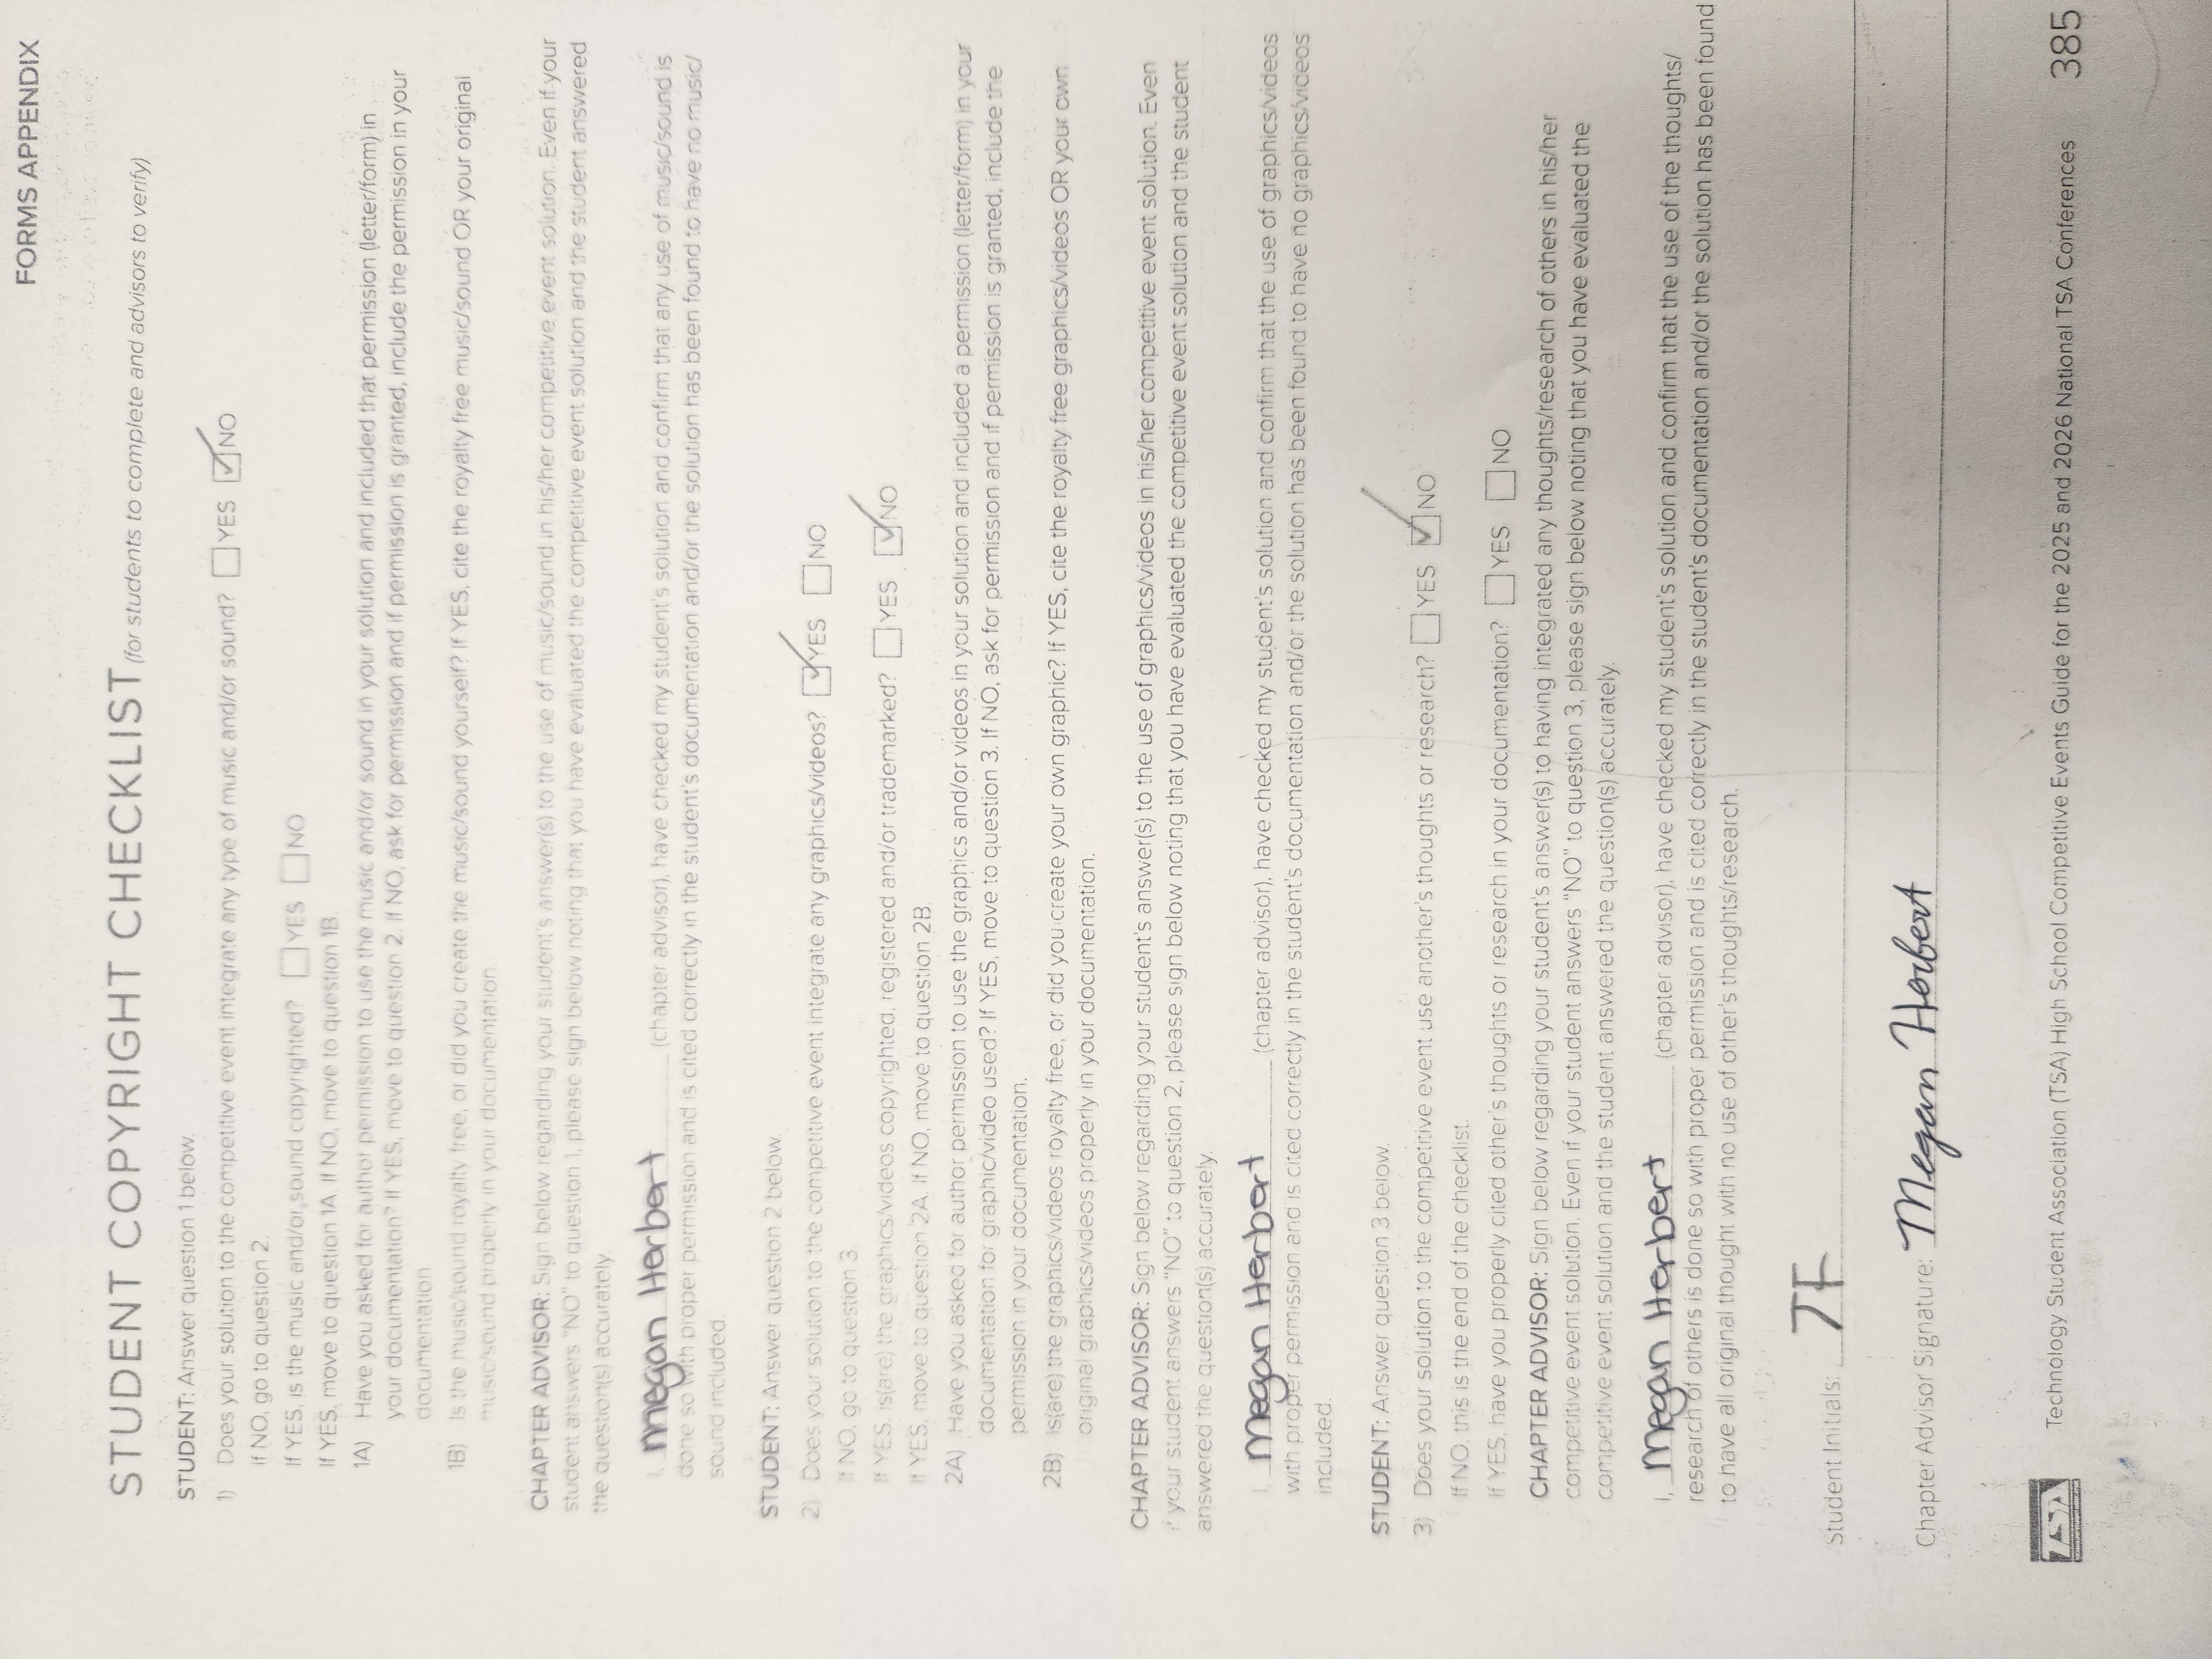 FORMS APPENDIX
STUDENT COPYRIGHT CHECKLIST (for students to complete and advisors to verify)
STUDENT: Answer question 1 below.
1) Does your solution to the competitive event integrate any type of music and/or sound? YES NO
If NO, go to question 2.
If YES, is the music and/or sound copyrighted? YES NO
If YES, move to question 1A. If NO, move to question 1B.
1A) Have you asked for author permission to use the music and/or sound in your solution and included that permission (letter/form) in
your documentation? If YES, move to question 2. If NO, ask for permission and if permission is granted, include the permission in your
documentation.
1B) Is the music/sound royalty free, or did you create the music/sound yourself? If YES, cite the royalty free music/sound OR your original
music/sound properly in your documentation.
CHAPTER ADVISOR: Sign below regarding your student's answer(s) to the use of music/sound in his/her competitive event solution. Even if your
student answers "NO" to question 1, please sign below noting that you have evaluated the competitive event solution and the student answered
the question(s) accurately.
I, Megan Herbert (chapter advisor), have checked my student's solution and confirm that any use of music/sound is
done so with proper permission and is cited correctly in the student's documentation and/or the solution has been found to have no music/
sound included.
STUDENT: Answer question 2 below.
2) Does your solution to the competitive event integrate any graphics/videos? YES NO
If NO, go to question 3.
If YES, is(are) the graphics/videos copyrighted, registered and/or trademarked? YES NO
If YES, move to question 2A. If NO, move to question 2B.
2A) Have you asked for author permission to use the graphics and/or videos in your solution and included a permission (letter/form) in your
documentation for graphic/video used? If YES, move to question 3. If NO, ask for permission and if permission is granted, include the
permission in your documentation.
2B) Is(are) the graphics/videos royalty free, or did you create your own graphic? If YES, cite the royalty free graphics/videos OR your own
original graphics/videos properly in your documentation.
CHAPTER ADVISOR: Sign below regarding your student's answer(s) to the use of graphics/videos in his/her competitive event solution. Even
if your student answers "NO" to question 2, please sign below noting that you have evaluated the competitive event solution and the student
answered the question(s) accurately.
I, Megan Herbert (chapter advisor), have checked my student's solution and confirm that the use of graphics/videos
with proper permission and is cited correctly in the student's documentation and/or the solution has been found to have no graphics/videos
included.
STUDENT: Answer question 3 below.
3) Does your solution to the competitive event use another's thoughts or research? YES NO
If NO, this is the end of the checklist.
If YES, have you properly cited other's thoughts or research in your documentation? YES NO
CHAPTER ADVISOR: Sign below regarding your student's answer(s) to having integrated any thoughts/research of others in his/her
competitive event solution. Even if your student answers "NO" to question 3, please sign below noting that you have evaluated the
competitive event solution and the student answered the question(s) accurately.
I, Megan Herbert (chapter advisor), have checked my student's solution and confirm that the use of the thoughts/
research of others is done so with proper permission and is cited correctly in the student's documentation and/or the solution has been found
to have all original thought with no use of other's thoughts/research.
Student Initials: JF
Chapter Advisor Signature: Megan Herbert
TSA Technology Student Association (TSA) High School Competitive Events Guide for the 2025 and 2026 National TSA Conferences 385